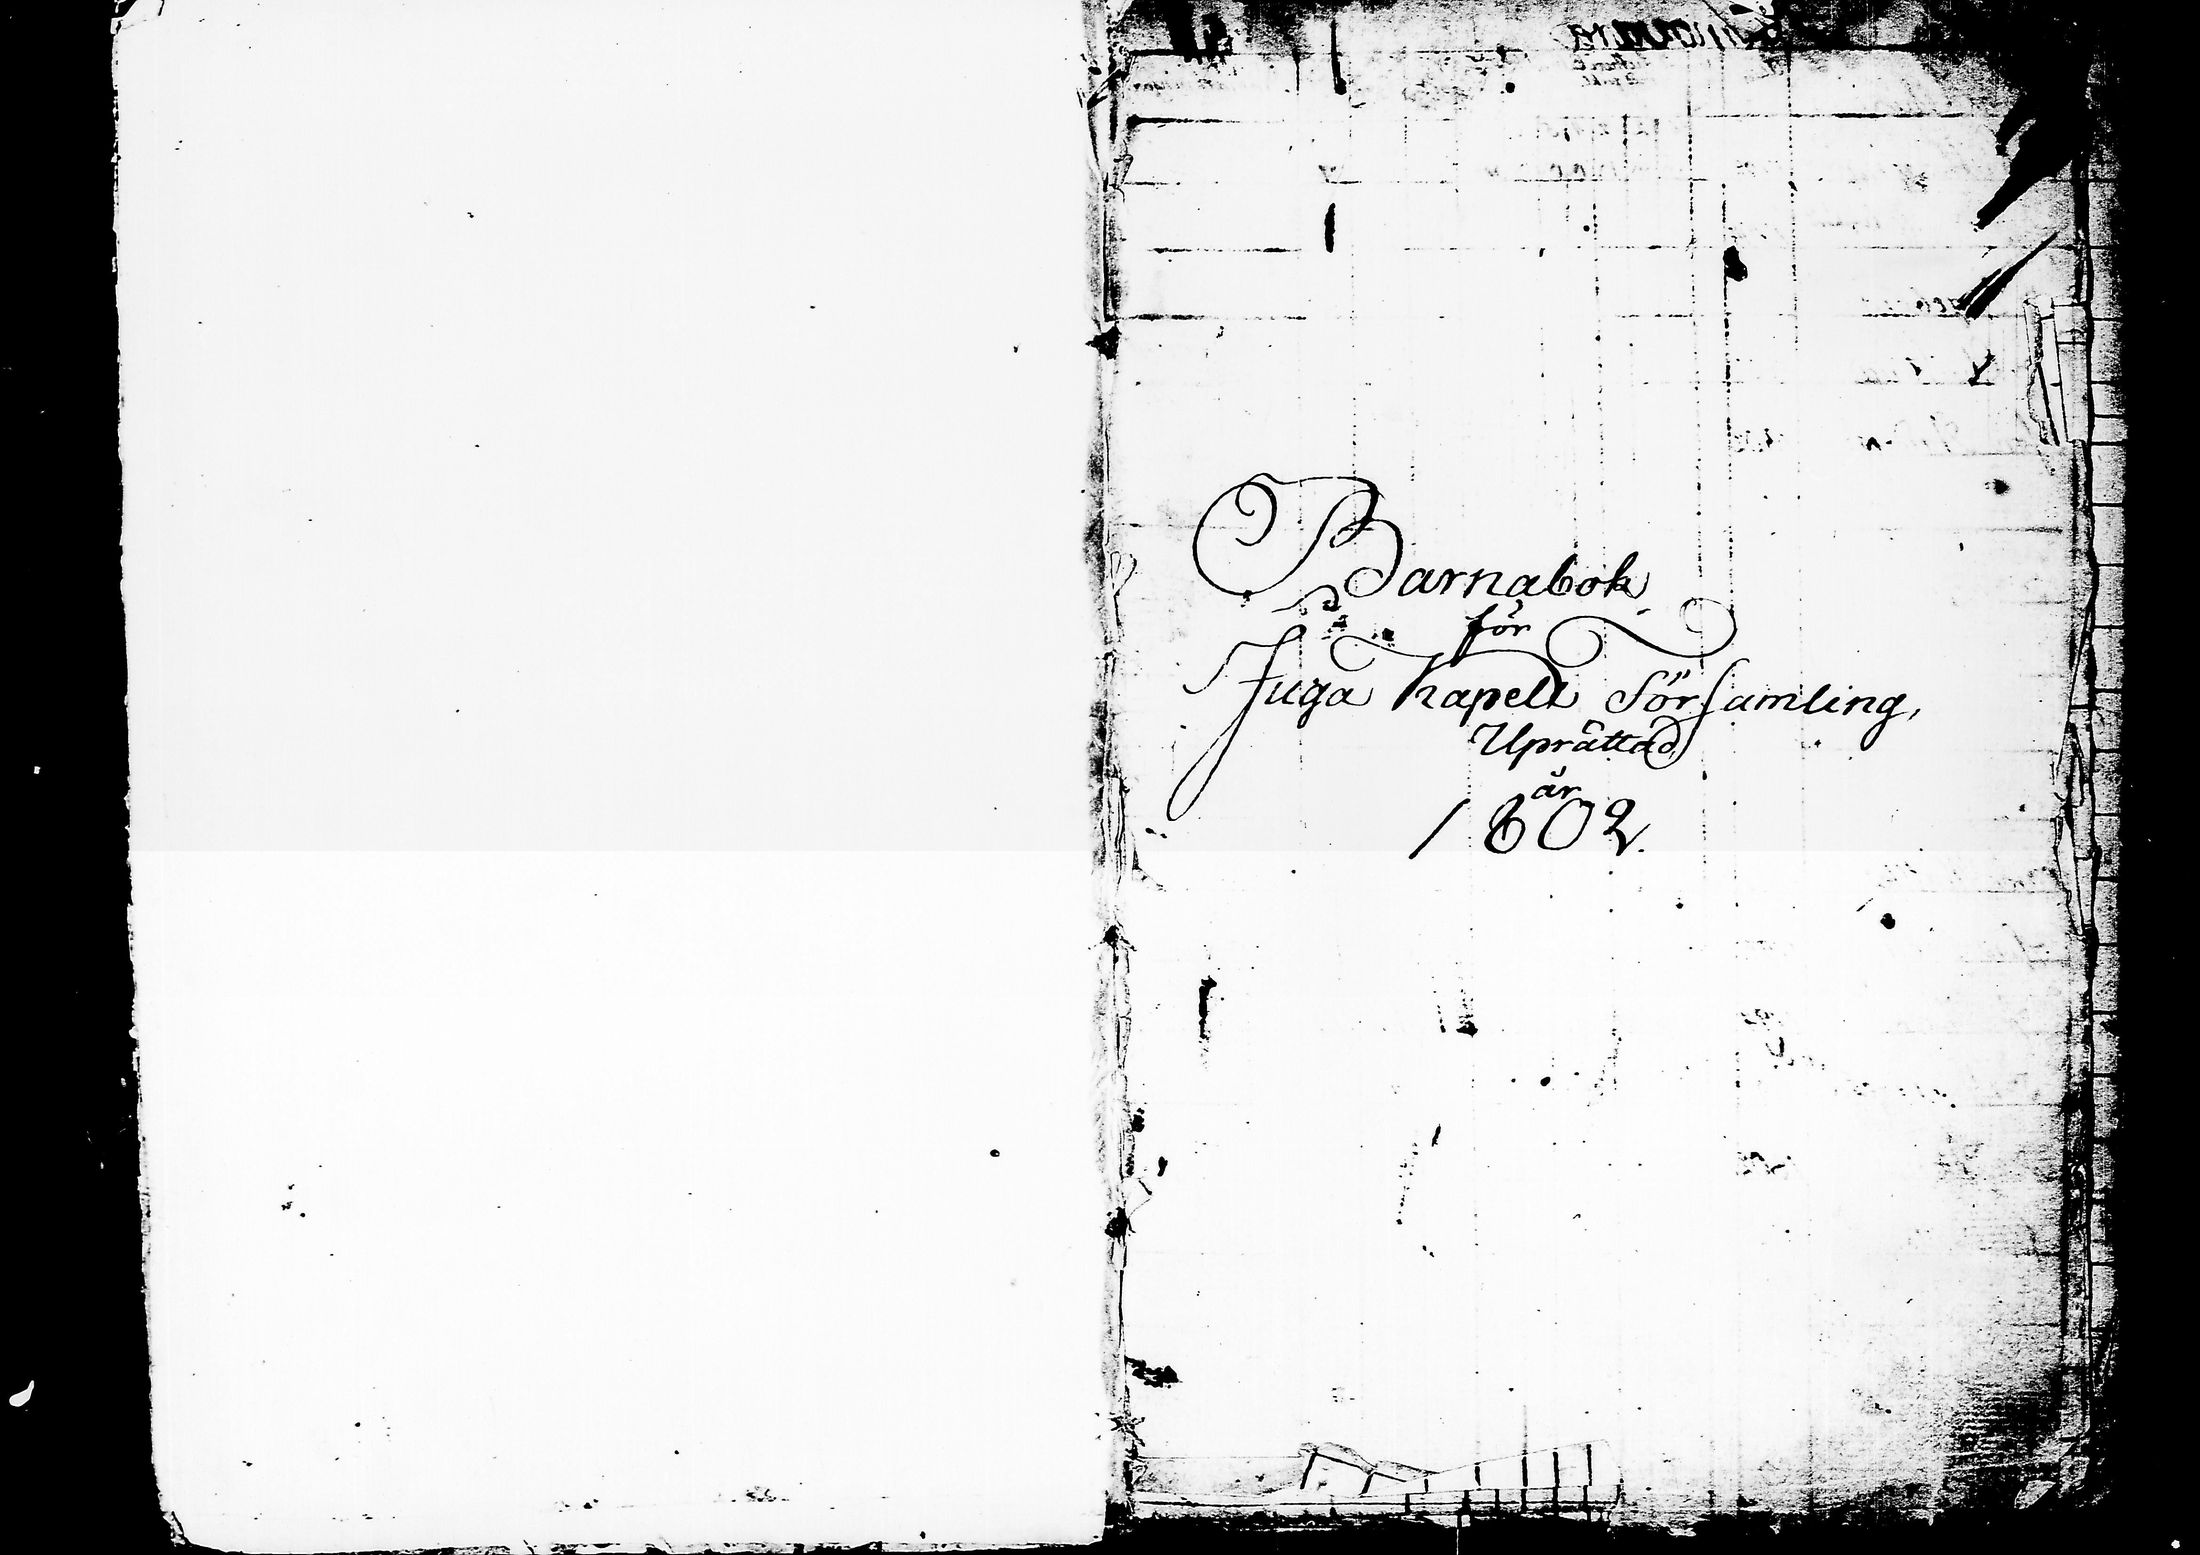 Barnabok
för
Juga Kapell Församling,
Uprättad
år
1802.